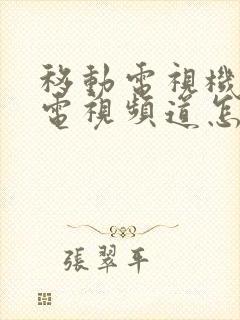 移動電視機
電視頻道怎
張翠平